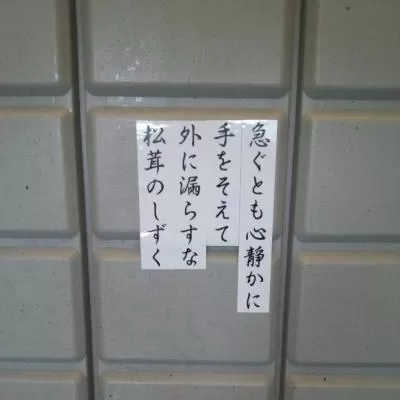 急ぐとも心静かに
手をそえて
外に漏らすな
松茸のしずく